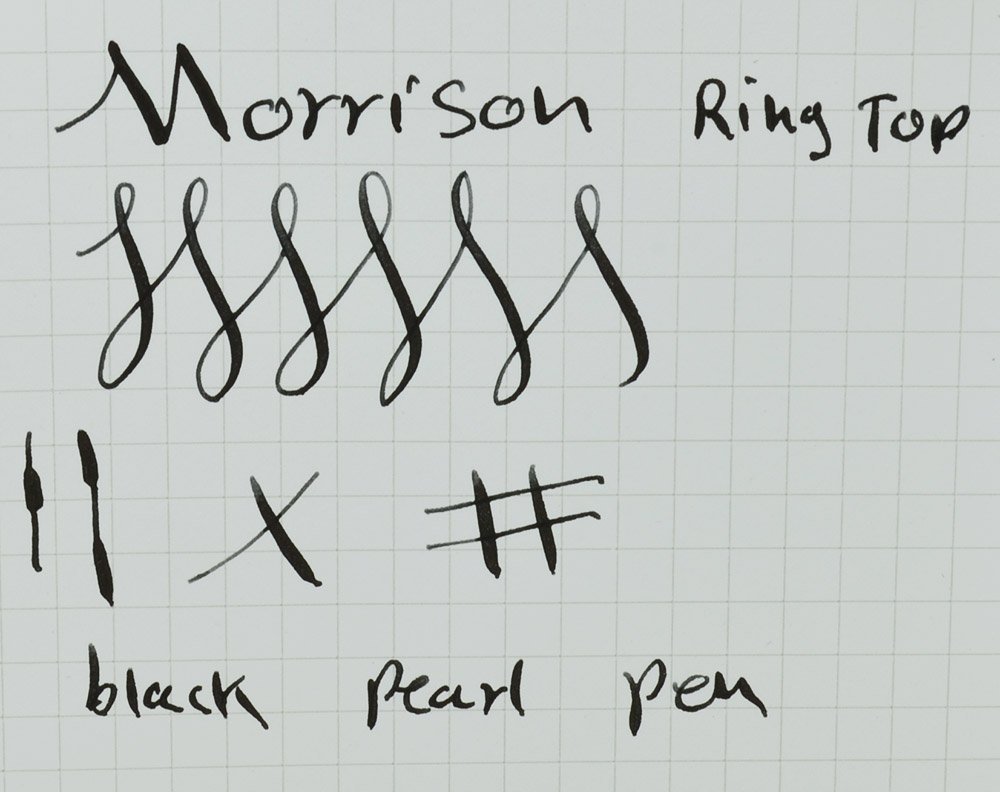 Morrison Ring Top
black pearl pen